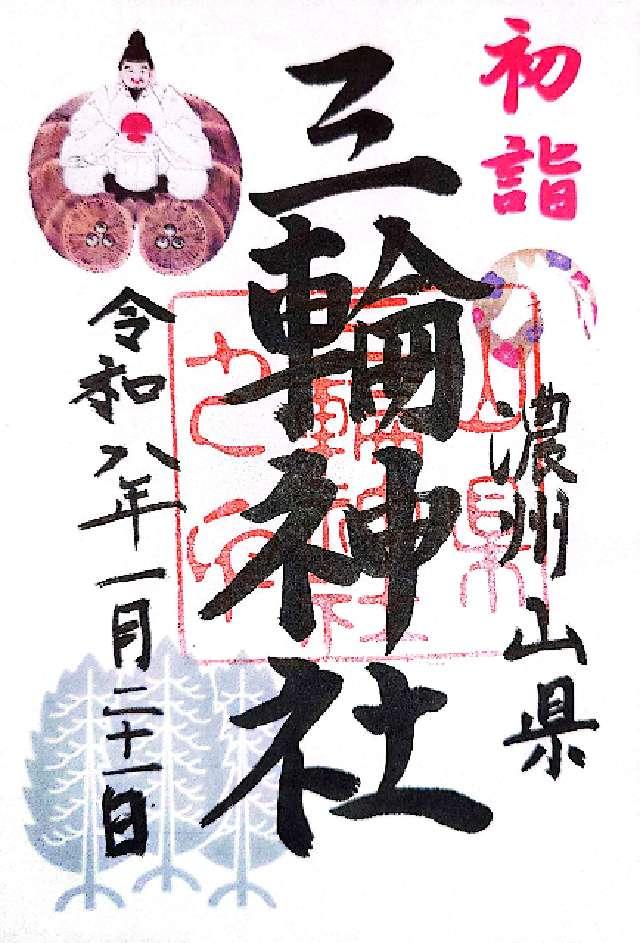 初詣
濃州山県
三輪神社
令和八年一月二十一日